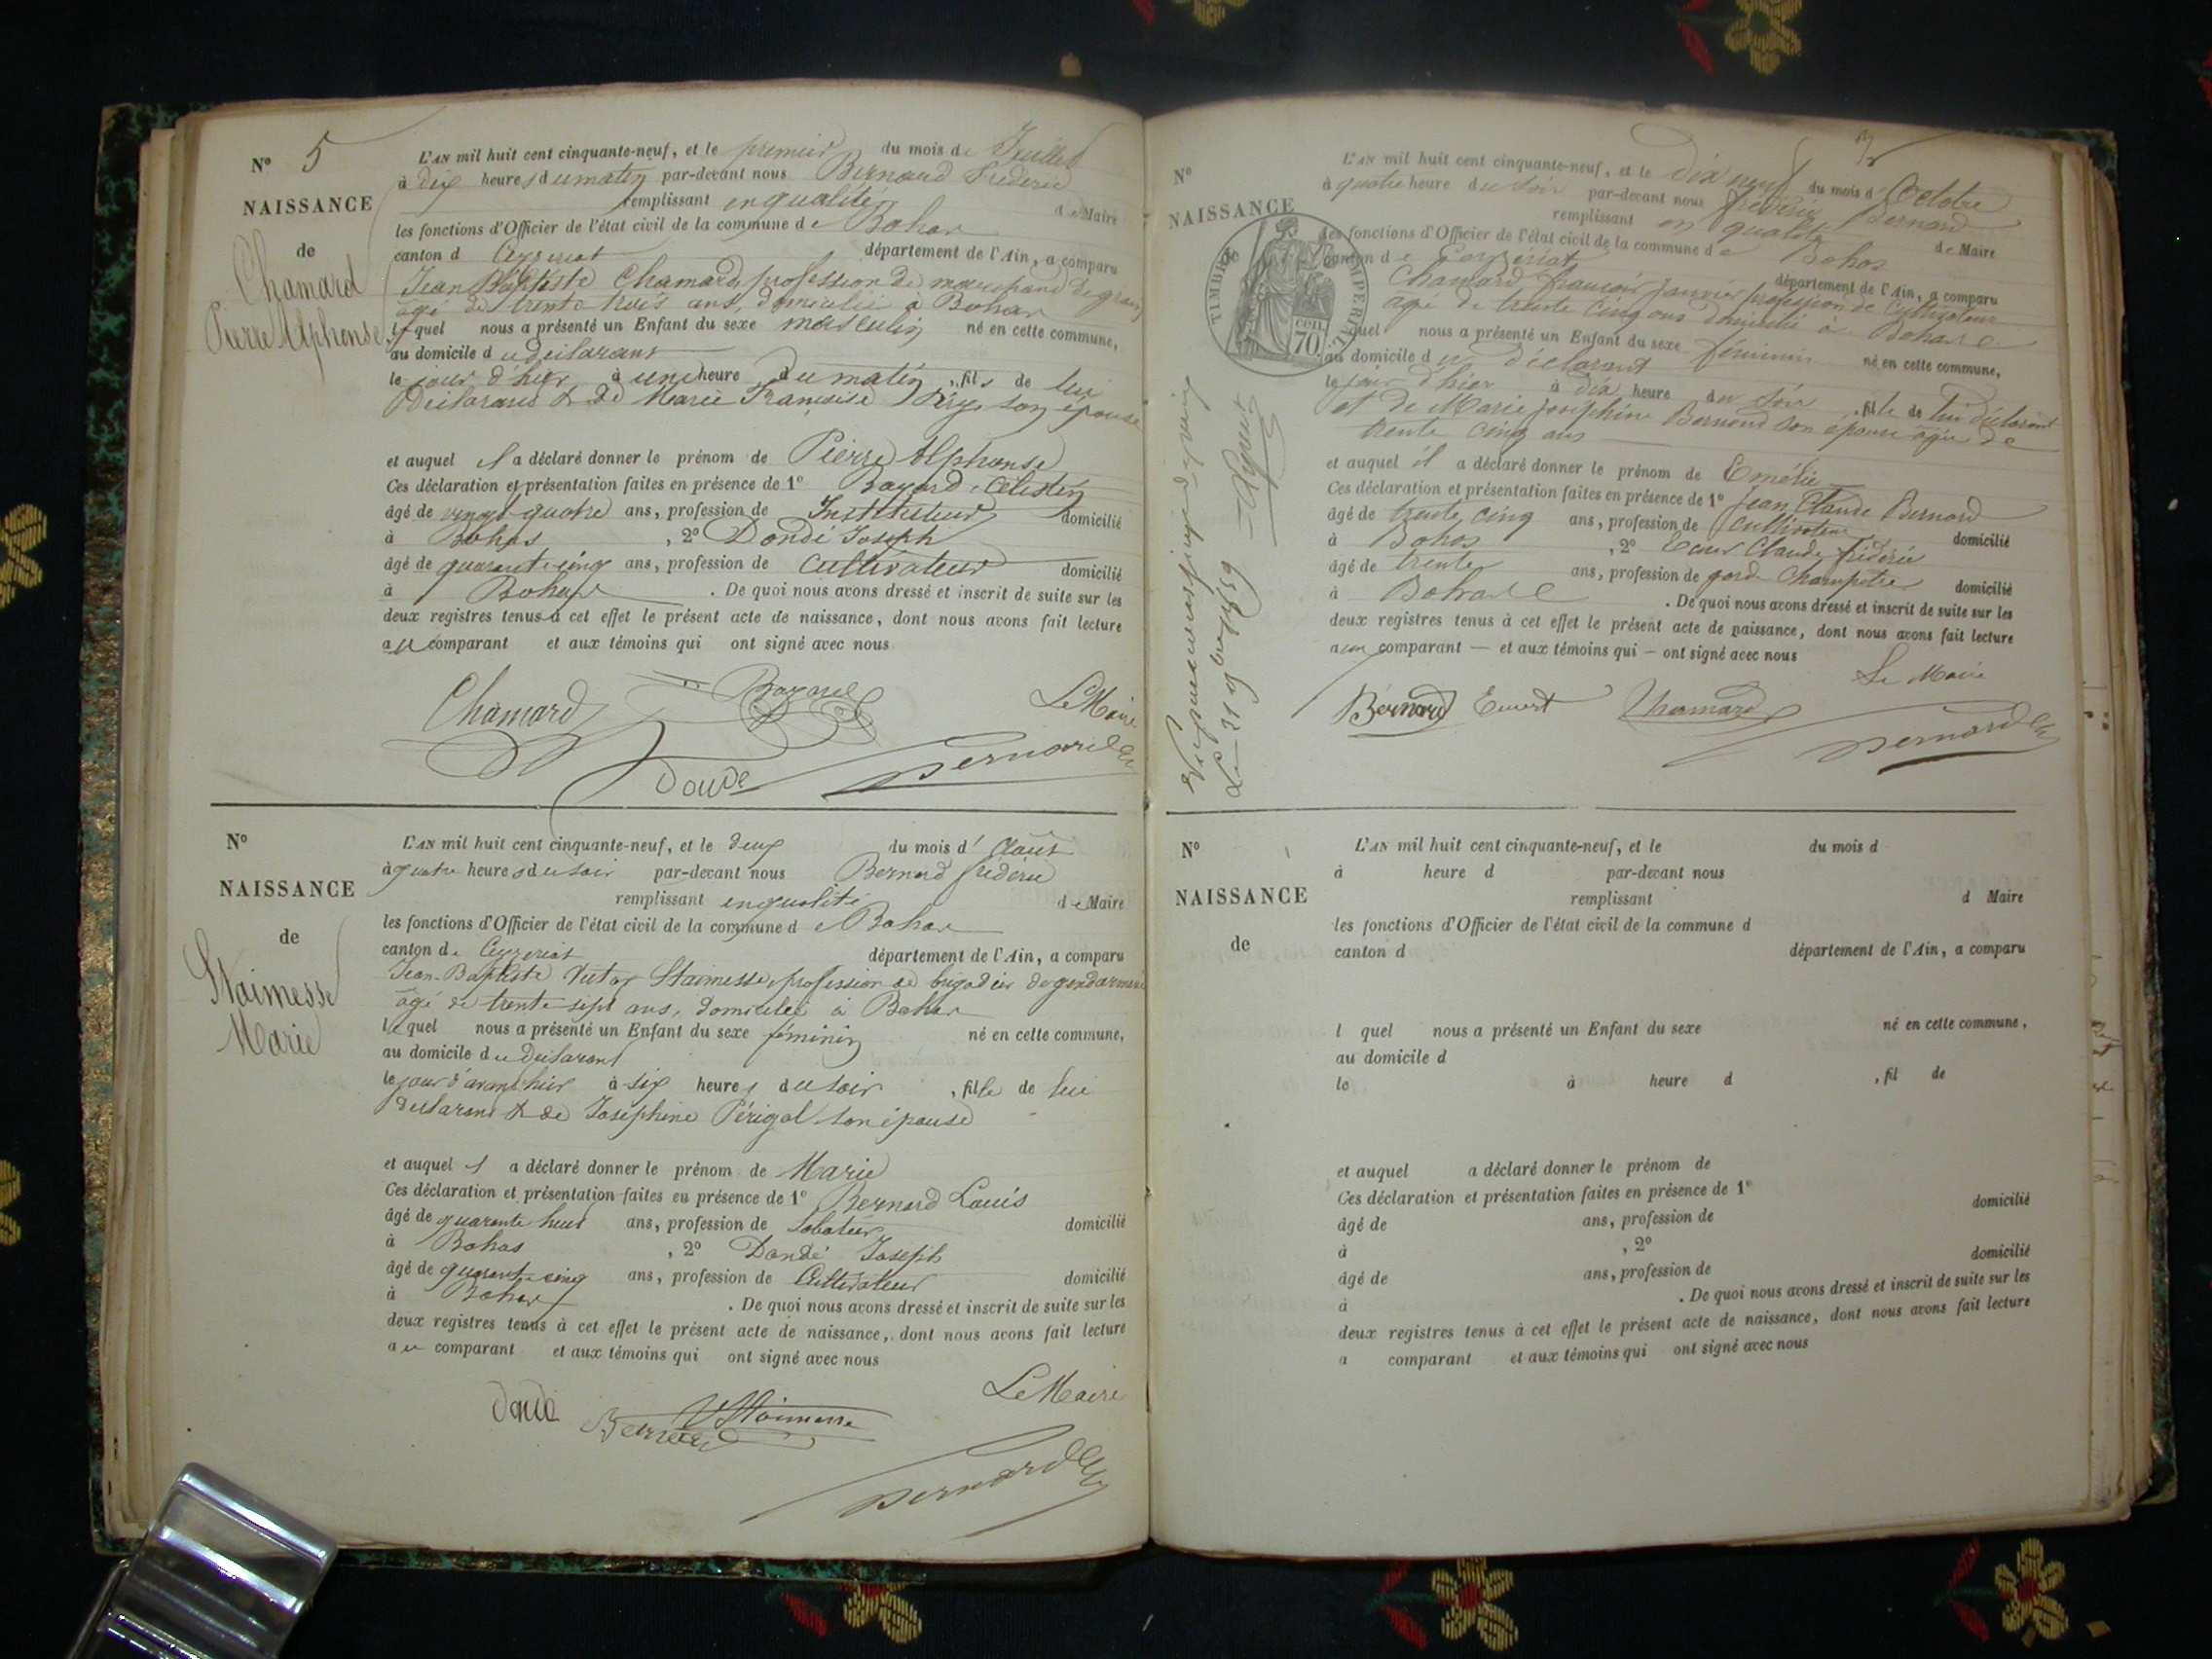 N° 5
NAISSANCE
de
Chamard
Pierre Alphonse
L'AN mil huit cent cinquante-neuf, et le premier du mois de Juillet
à dix heures du matin par-devant nous Bernard Frédéric
remplissant en qualité de Maire
les fonctions d'Officier de l'état civil de la commune de Bohas
canton d Ceyzeriat département de l'Ain, a comparu
Jean Baptiste Chamard, profession de marchand de grains
âgé de trente trois ans, domicilié à Bohas
lequel nous a présenté un Enfant du sexe masculin né en cette commune,
au domicile du déclarant
le jour d'hier à une heure du matin, fils de lui
déclarant & de Marie Françoise son épouse
et auquel il a déclaré donner le prénom de Pierre Alphonse
Ces déclaration et présentation faites en présence de 1° Bayard Célestin
âgé de vingt quatre ans, profession de Instituteur domicilié
à Bohas, 2° Dondé Joseph
âgé de quarante cinq ans, profession de cultivateur domicilié
à Bohas. De quoi nous avons dressé et inscrit de suite sur les
deux registres tenus à cet effet le présent acte de naissance, dont nous avons fait lecture
au comparant et aux témoins qui ont signé avec nous
Chamard Bayard Le Maire
Dondé Bernard
N°
NAISSANCE
de
Staimesse
Marie
L'AN mil huit cent cinquante-neuf, et le deux du mois d'Août
à quatre heures du soir par-devant nous Bernard frédéric
remplissant en qualité de Maire
les fonctions d'Officier de l'état civil de la commune d e Bohas
canton de Ceyzeriat département de l'Ain, a comparu
Jean-Baptiste Victor Staimesse, profession de brigadier de gendarmerie
âgé de trente sept ans, domicilié à Bohas
lequel nous a présenté un Enfant du sexe féminin né en cette commune,
au domicile du déclarant
le jour d'avant hier à six heures du soir, fille de lui
déclarant & de Joséphine Périgal son épouse
et auquel il a déclaré donner le prénom de Marie
Ces déclaration et présentation faites en présence de 1° Bernard Louis
âgé de quarante huit ans, profession de Sabotier domicilié
à Bohas, 2° Dondé Joseph
âgé de quarante cinq ans, profession de Cultivateur domicilié
à Bohas. De quoi nous avons dressé et inscrit de suite sur les
deux registres tenus à cet effet le présent acte de naissance, dont nous avons fait lecture
au comparant et aux témoins qui ont signé avec nous
Le Maire
Dondé Bernard Staimesse
Bernard
N°
NAISSANCE
TIMBRE IMPERIAL
cen. 70
L'AN mil huit cent cinquante-neuf, et le dix neuf du mois d'Octobre
à quatre heure du soir par-devant nous frédéric Bernard
remplissant en qualité de Maire
les fonctions d'Officier de l'état civil de la commune de Bohas
canton de Ceyzériat département de l'Ain, a comparu
Chamard françois Janvier profession de Cultivateur
âgé de trente cinq ans domicilié à Bohas
lequel nous a présenté un Enfant du sexe féminin né en cette commune,
au domicile du déclarant
le jour d'hier à dix heure du soir, fille de lui déclarant
et de Marie Joséphine Bernard son épouse âgée de
trente cinq ans
et auquel il a déclaré donner le prénom de Emélie
Ces déclaration et présentation faites en présence de 1° Jean Claude Bernard
âgé de trente cinq ans, profession de Cultivateur domicilié
à Bohas, 2° Claude frédéric
âgé de trente ans, profession de garde Champetre domicilié
à Bohas. De quoi nous avons dressé et inscrit de suite sur les
deux registres tenus à cet effet le présent acte de naissance, dont nous avons fait lecture
au comparant — et aux témoins qui — ont signé avec nous
Le Maire
Bernard Chamard
Bernard
N°
NAISSANCE
de
L'AN mil huit cent cinquante-neuf, et le du mois d
à heure d par-devant nous
remplissant d Maire
les fonctions d'Officier de l'état civil de la commune d
canton d département de l'Ain, a comparu
l quel nous a présenté un Enfant du sexe né en cette commune,
au domicile d
le à heure d, fil de
et auquel a déclaré donner le prénom de
Ces déclaration et présentation faites en présence de 1°
âgé de ans, profession de domicilié
à, 2°
âgé de ans, profession de domicilié
à. De quoi nous avons dressé et inscrit de suite sur les
deux registres tenus à cet effet le présent acte de naissance, dont nous avons fait lecture
a comparant et aux témoins qui ont signé avec nous